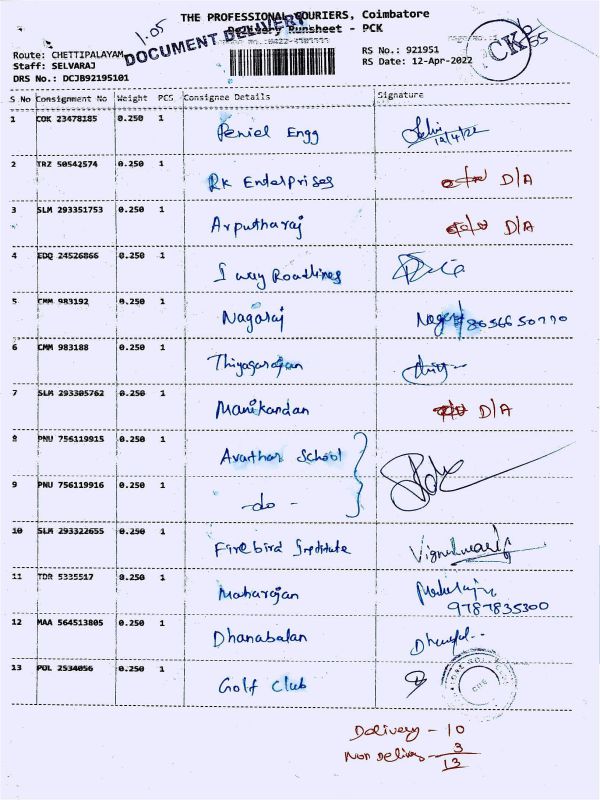 1.05
THE PROFESSIONAL COURIERS, Coimbatore
DOCUMENT DELIVERY
Delivery Runsheet - PCK
Route: CHETTIPALAYAM
Staff: SELVARAJ
DRS No.: DCJB92195101
RS No.: 921951
RS Date: 12-Apr-2022
CK
S No Consignment No Weight PCS Consignee Details Signature
1 COK 23478185 0.250 1 Peniel Engg
12/4/22
2 TRZ 50542574 0.250 1 RK Enterprises D/A
3 SLM 293351753 0.250 1 Arputharaj D/A
4 EDQ 24526866 0.250 1 I way Roadlines
5 CMM 983192 0.250 1 Nagaraj Nagaraj 8056650770
6 CMM 983188 0.250 1 Thiyagarajan
7 SLM 293305762 0.250 1 Manikandan D/A
8 PNU 756119915 0.250 1 Avarthar School
9 PNU 756119916 0.250 1 -do-
10 SLM 293322655 0.250 1 Firebird Institute
11 TDR 5335517 0.250 1 Maharajan
9787835300
12 MAA 564513805 0.250 1 Dhanabalan
13 POL 2534056 0.250 1 Golf Club
Delivery - 10
Non Delivery - 3
13